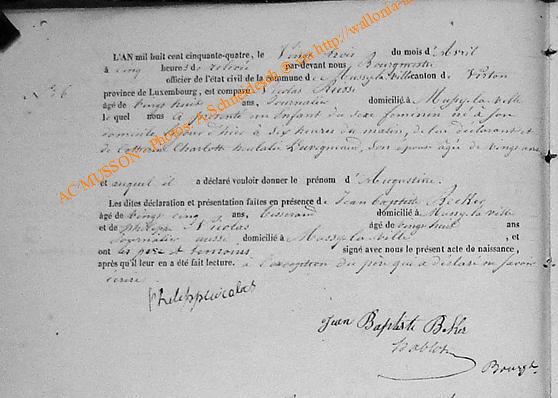 L'AN mil huit cent cinquante-quatre, le vingt trois du mois d'Avril
à cinq heures de relevée par-devant nous Bourgmestre
officier de l'état civil de la commune de Mussy la ville canton de Virton
N° 6.
province de Luxembourg, est comparu Nicolas
âgé de vingt huit ans, journalier domicilié à Mussy la ville
lequel nous a présenté un Enfant du sexe féminin né à son
domicile, hier à six heures du matin, de lui déclarant et
de Charlotte son épouse âgée de vingt ans
et auquel il a déclaré vouloir donner le prénom d'Augustine.
Les dites déclaration et présentation faites en présence de Jean baptiste Beker
âgé de vingt cinq ans, tisserand domicilié à Mussy la ville
et de philippe Nicolas âgé de vingt huit ans
journalier aussi domicilié à Mussy la ville , et
ont les père et témoins signé avec nous le présent acte de naissance,
après qu'il leur en a été fait lecture. à l'exception du père qui a déclaré ne savoir
écrire
philippe nicolas
Jean Baptiste Beker
Bourgt.
AC MUSSON - Photos: A Schneidesch © via http://wallonia